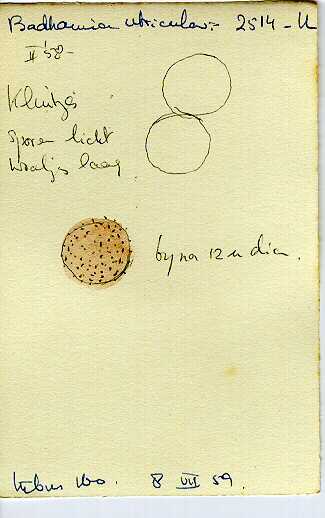 Badhamia utricular= 2514-U
II '58-
Kluitjes
sporen licht
wratjes laag
byna 12 u diam.
8 VII 59.